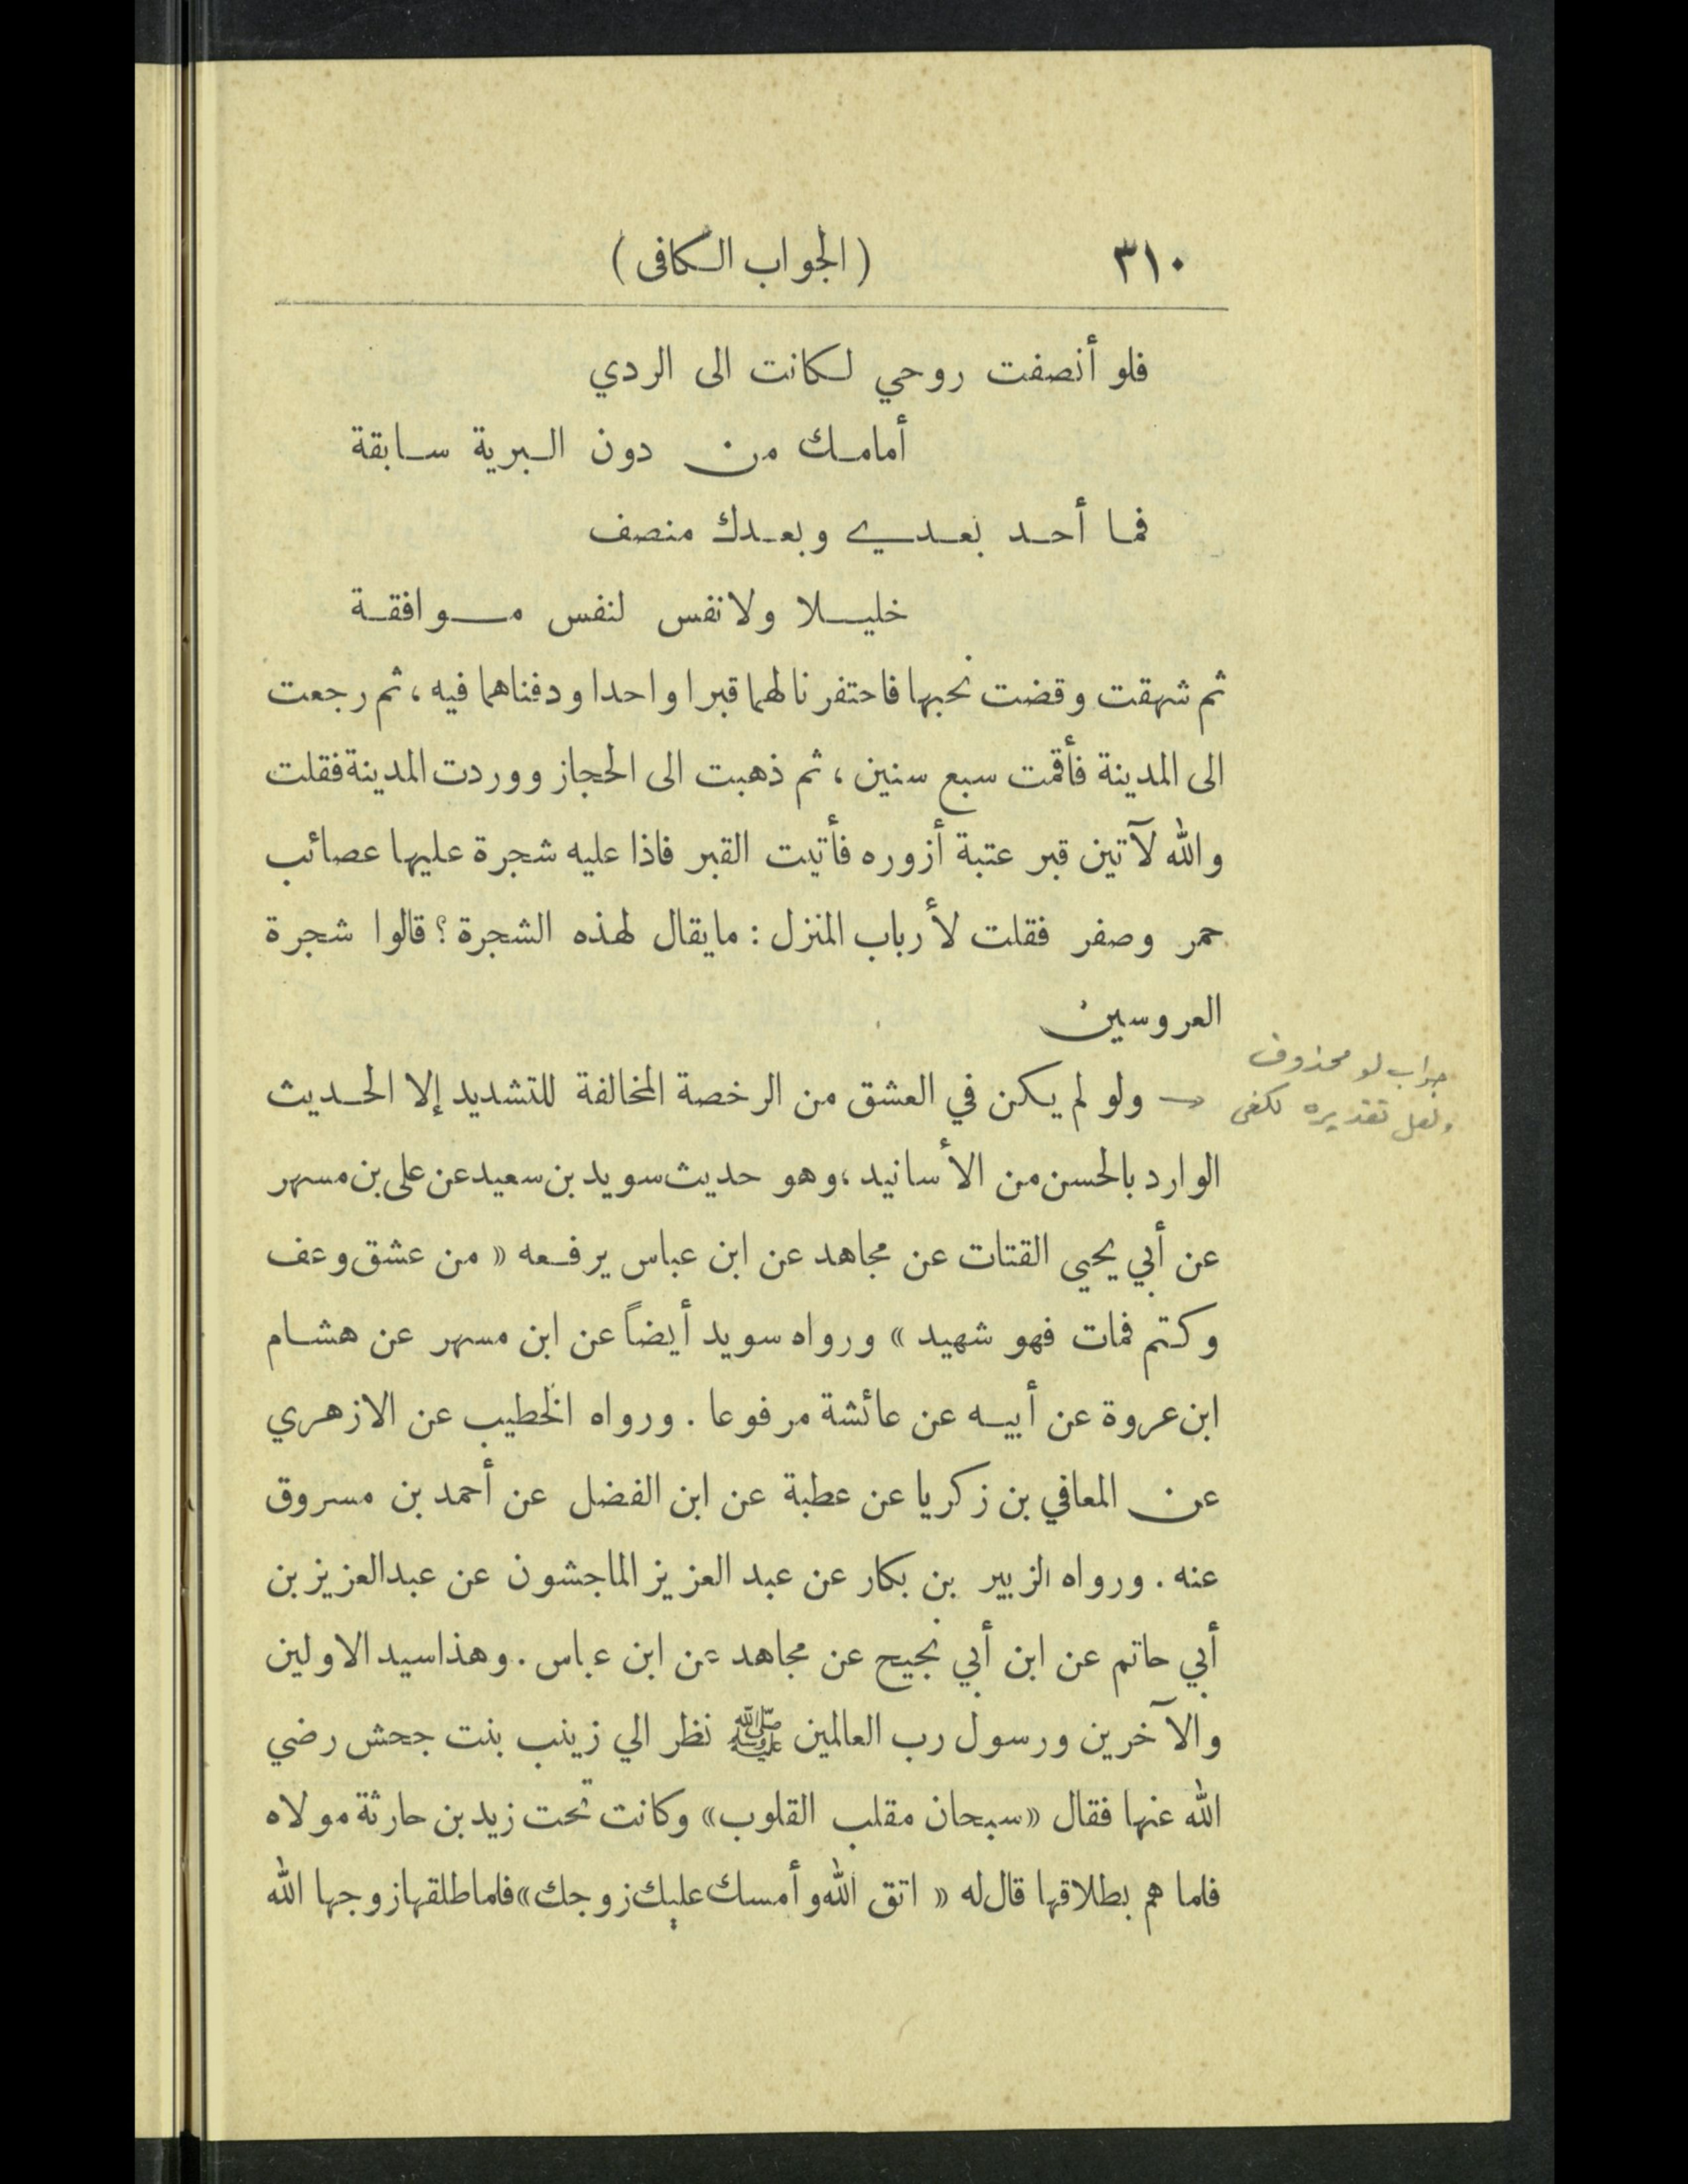 ٣١٠
( الجواب الكافى )
فلو أنصفت روحي لكانت الى الردي
أمامك من دون البرية سابقة
فما أحد بعدي وبعدك منصف
خليلا ولا نفس لنفس موافقة
ثم شهقت وقضت نحبها فاحتفرنا لهما قبرا واحدا ودفناهما فيه ، ثم رجعت
الى المدينة فأقمت سبع سنين ، ثم ذهبت الى الحجاز ووردت المدينة فقلت
والله لآتين قبر عتبة أزوره فأتيت القبر فاذا عليه شجرة عليها عصائب
حمر وصفر فقلت لأرباب المنزل : ما يقال لهذه الشجرة ؟ قالوا شجرة
العروسين
جواب لو محذوف
ولعل تقديره لكفى
ولو لم يكن في العشق من الرخصة المخالفة للتشديد إلا الحديث
الوارد بالحسن من الأسانيد ، وهو حديث سويد بن سعيد عن على بن مسهر
عن أبي يحيى القتات عن مجاهد عن ابن عباس يرفعه « من عشق وعف
وكتم فمات فهو شهيد » ورواه سويد أيضاً عن ابن مسهر عن هشام
ابن عروة عن أبيه عن عائشة مرفوعا . ورواه الخطيب عن الازهري
عن المعافي بن زكريا عن عطبة عن ابن الفضل عن أحمد بن مسروق
عنه . ورواه الزبير بن بكار عن عبد العزيز الماجشون عن عبدالعزيز بن
أبي حاتم عن ابن أبي نجيح عن مجاهد عن ابن عباس . وهذا سيد الاولين
والآخرين ورسول رب العالمين ﷺ نظر الي زينب بنت جحش رضي
الله عنها فقال «سبحان مقلب القلوب» وكانت تحت زيد بن حارثة مولاه
فلما هم بطلاقها قال له « اتق الله وأمسك عليك زوجك» فلما طلقها زوجها الله